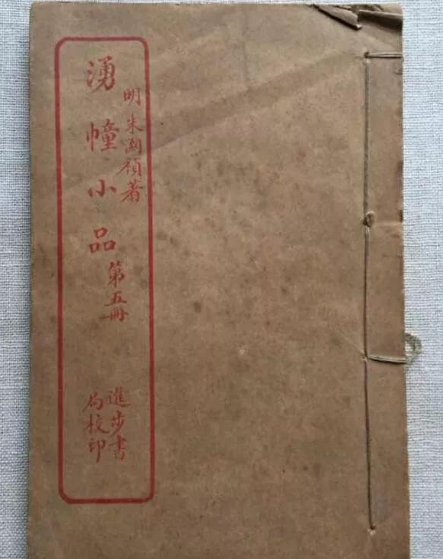 明朱国禎著
湧幢小品
第五冊
進步書
局校印